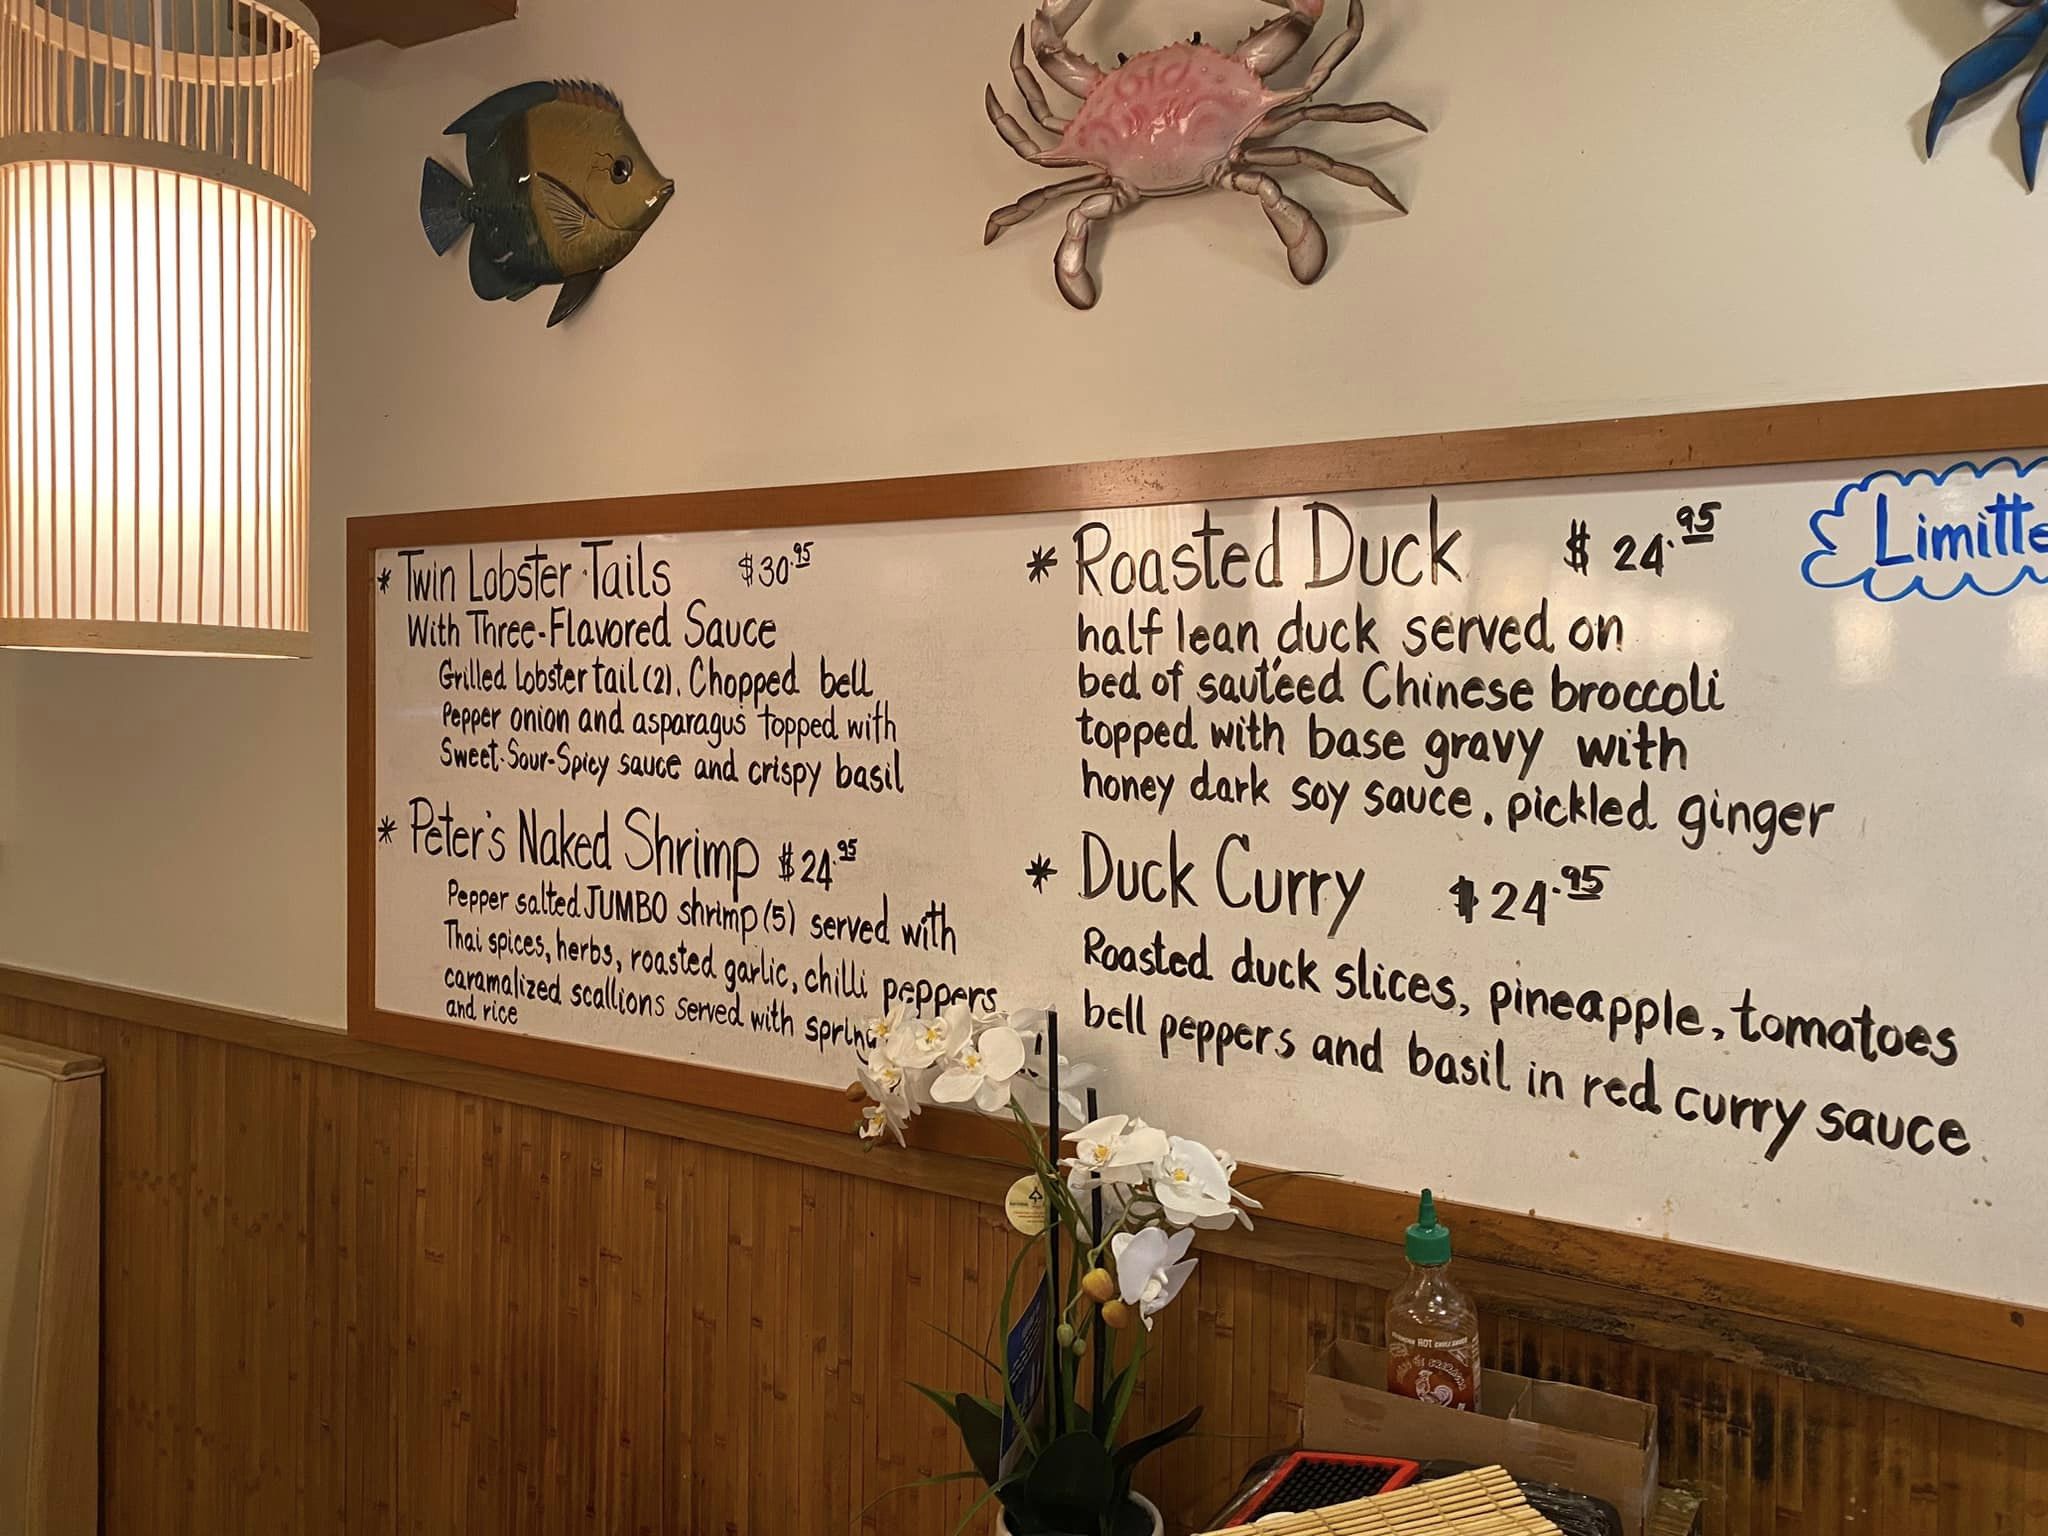 * Twin Lobster Tails $30.95
With Three-Flavored Sauce
Grilled lobster tail (2), Chopped bell
Pepper onion and asparagus topped with
Sweet-Sour-Spicy sauce and crispy basil
* Peter's Naked Shrimp $24.95
Pepper salted JUMBO shrimp (5) served with
Thai spices, herbs, roasted garlic, chilli peppers
caramalized scallions served with spring
and rice
* Roasted Duck $24.95
half lean duck served on
bed of sautéed Chinese broccoli
topped with base gravy with
honey dark soy sauce, pickled ginger
* Duck Curry $24.95
Roasted duck slices, pineapple, tomatoes
bell peppers and basil in red curry sauce
Limitte
HOT